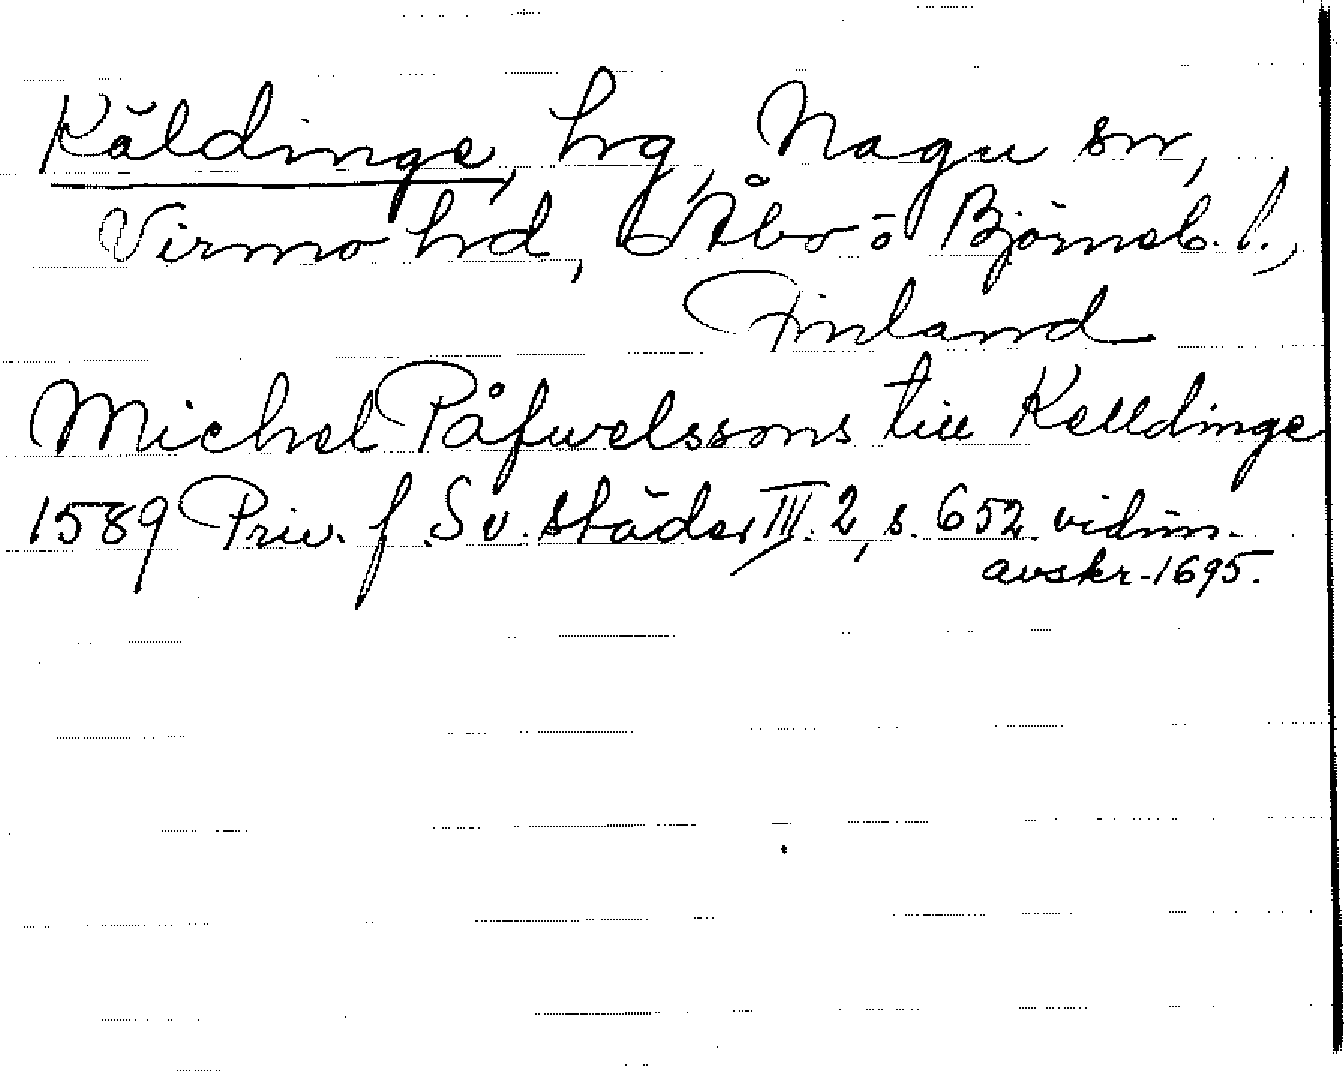 Käldinge, hrg, Nagu sn,
Virmo hrd, Åbo- ö Björneb. l.,
Finland
Michel Påfwelssons till Kelldinge
1589 Priv. f Sv. städer III. 2, s. 652 vidim.
avskr. 1695.